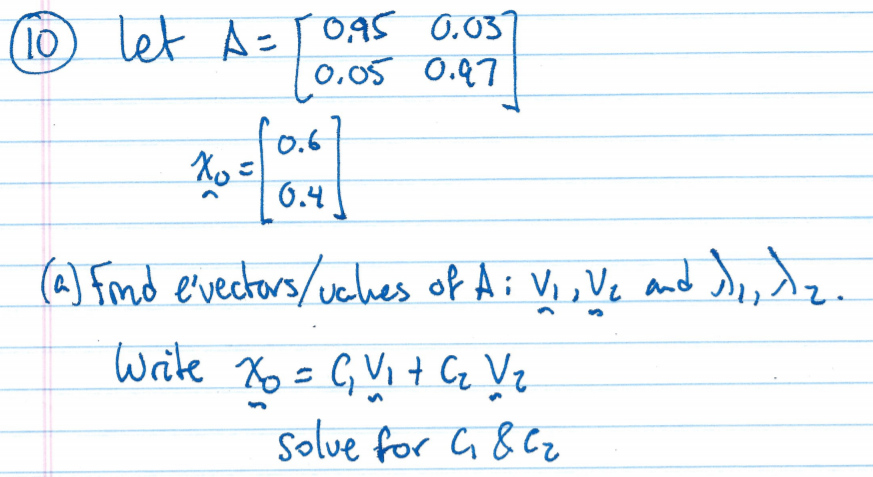 (10) let A = [0.95 0.03
0.05 0.97]
x₀ = [0.6
0.4]
(a) Find e'vectors/values of A: v₁, v₂ and λ₁, λ₂.
Write x₀ = C₁ V₁ + C₂ V₂
solve for C₁ & C₂